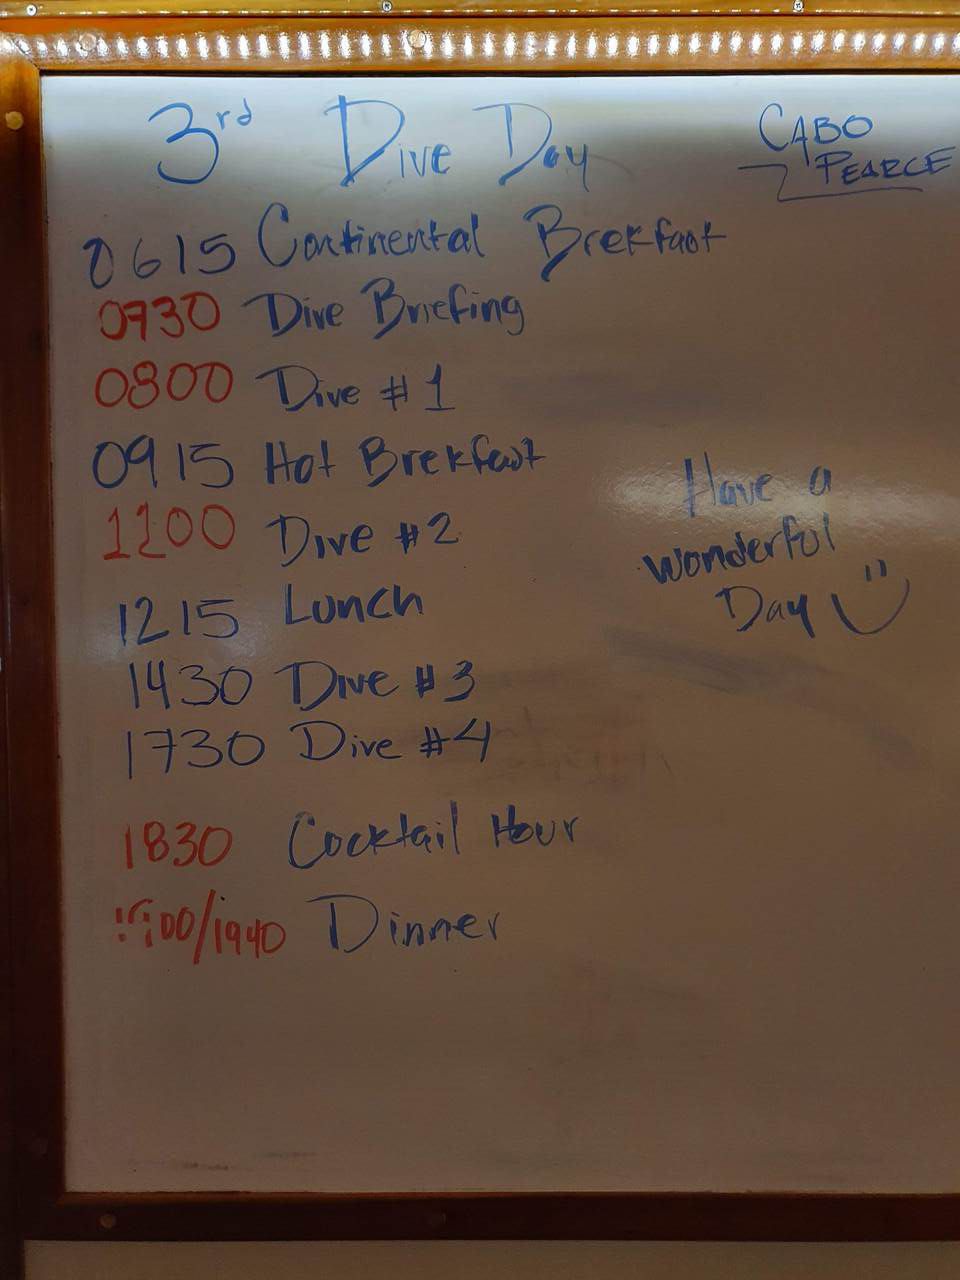 3rd Dive Day
CABO
PEARCE
0615 Continental Brekfast
0730 Dive Briefing
0800 Dive #1
0915 Hot Brekfast
1100 Dive #2
1215 Lunch
1430 Dive #3
1730 Dive #4
1830 Cocktail Hour
/1940 Dinner
Have a
wonderful
Day